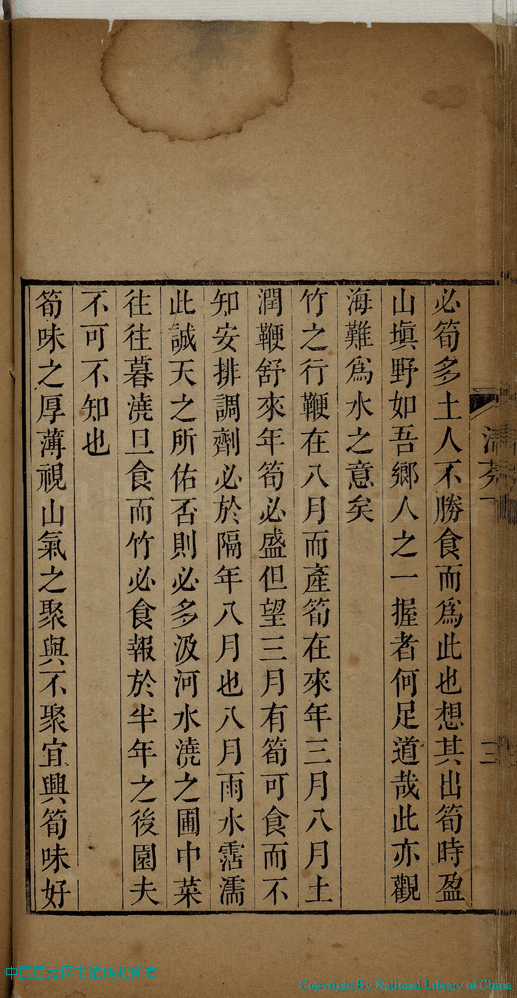 必筍多土人不勝食而爲此也想其出筍時盈
山塡野如吾鄉人之一握者何足道哉此亦觀
海難爲水之意矣
竹之行鞭在八月而產筍在來年三月八月土
潤鞭舒來年筍必盛但望三月有筍可食而不
知安排調劑必於隔年八月也八月雨水霑濡
此誠天之所佑否則必多汲河水澆之圃中菜
往往暮澆旦食而竹必食報於半年之後園夫
不可不知也
筍味之厚薄視山氣之聚與不聚宜興筍味好
三
Copyright By National Library of China